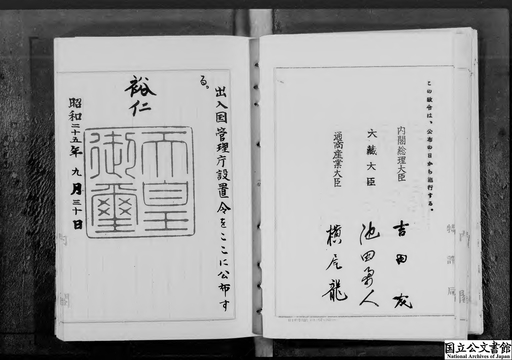 この政令は、公布の日から施行する。
内閣総理大臣 吉田茂
大蔵大臣 池田勇人
通商産業大臣 横尾龍
出入国管理庁設置令をここに公布す
る。
裕仁
天皇
御璽
昭和二十五年九月三十日
国立公文書館
National Archives of Japan